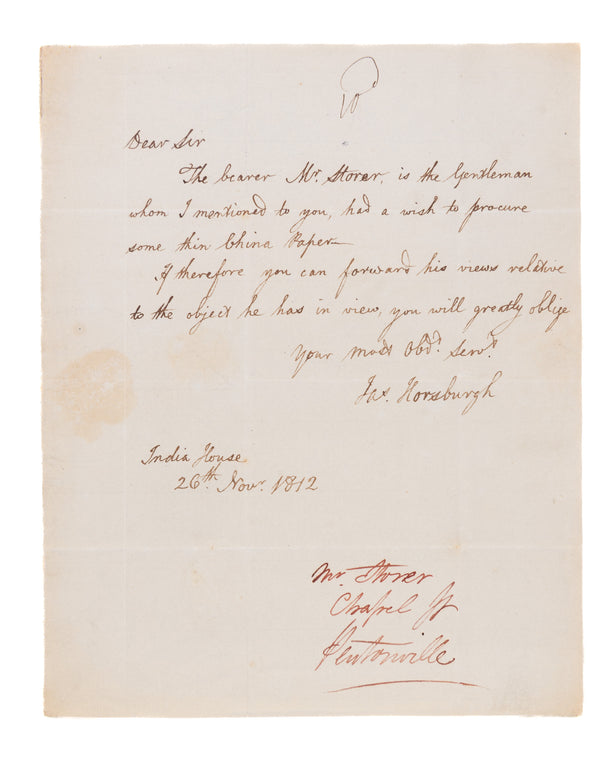 10d
Dear Sir
The bearer Mr. Storer, is the Gentleman
whom I mentioned to you, had a wish to procure
some thin China Paper—
If therefore you can forward his views relative
to the object he has in view, you will greatly oblige
Your most Obd.t Serv.t
Jas. Horsburgh
India House
26th Novr. 1812
Mr. Storer
Chapel St
Pentonville